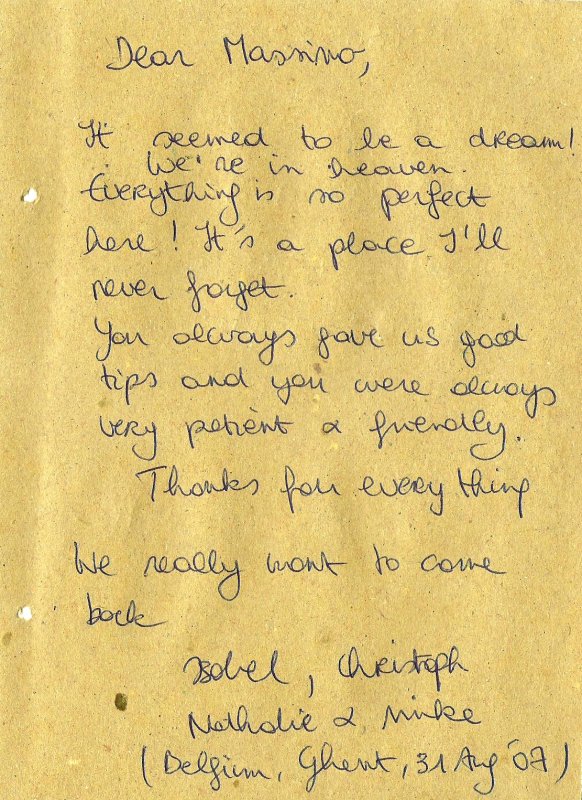 Dear Massimo,
It seemed to be a dream!
We're in heaven.
Everything is so perfect
here! It's a place I'll
never forget.
You always gave us good
tips and you were always
very patient & friendly.
Thanks for everything
We really want to come
back
Isabel, Christoph
Nathalie & Minke
(Belgium, Ghent, 31 Aug '07)